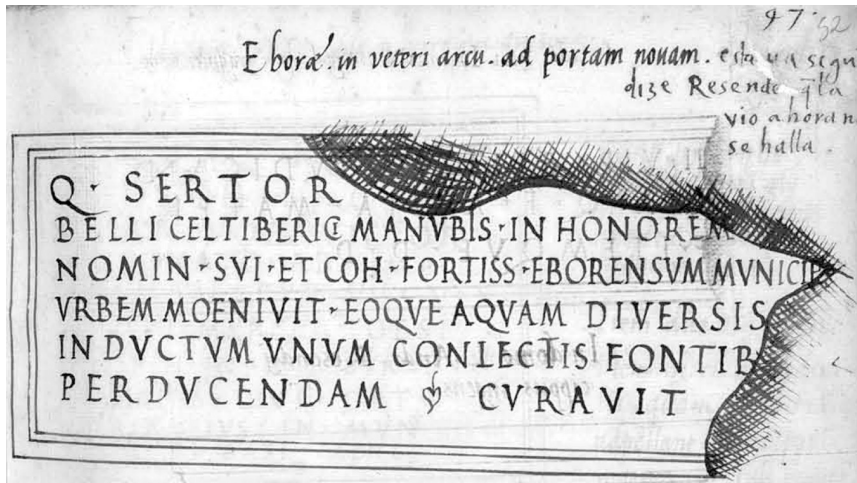 97. 52
Eboræ in veteri arcu. ad portam novam. esta va segu
dize Resende q̃ la
vio ahora n
se halla.
Q. SERTOR
BELLI CELTIBERICI MANVBIS · IN HONOREM
NOMIN · SVI · ET COH · FORTISS · EBORENSVM MVNICIP
VRBEM MOENIVIT · EOQVE AQVAM DIVERSIS
IN DVCTVM VNVM CONLECTIS FONTIB
PERDVCENDAM ❦ CVRAVIT